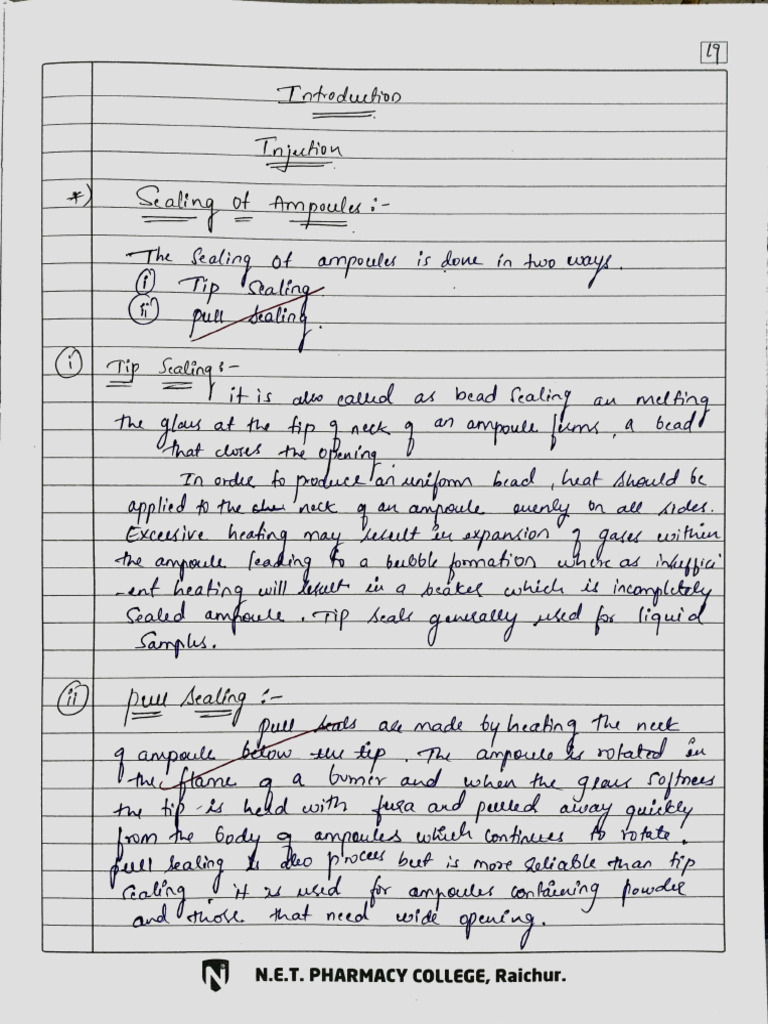 19
Introduction
Injection
*) Sealing of Ampoules :-
The Sealing of ampoules is done in two ways.
i Tip Sealing.
ii pull Sealing.
i Tip Sealing :-
it is also called as bead Sealing an melting
the glass at the tip of neck of an ampoule forms, a bead
that closes the opening.
In order to produce an uniform bead, heat should be
applied to the neck of an ampoule evenly on all sides.
Excessive heating may result in expansion of gases within
the ampoule leading to a bubble formation where as insuffici
-ent heating will result in a which is incompletely
Sealed ampoule. Tip seals generally used for liquid
Samples.
ii pull Sealing :-
pull seals are made by heating the neck
of ampoule below the tip. The ampoule is rotated in
the flame of a burner and when the glass Softnes
the tip is held with and pulled away quickly
from the body of ampoules which continues to rotate.
pull sealing is also process but is more reliable than tip
sealing. it is used for ampoules containing powder
and those that need wide opening.
N.E.T. PHARMACY COLLEGE, Raichur.